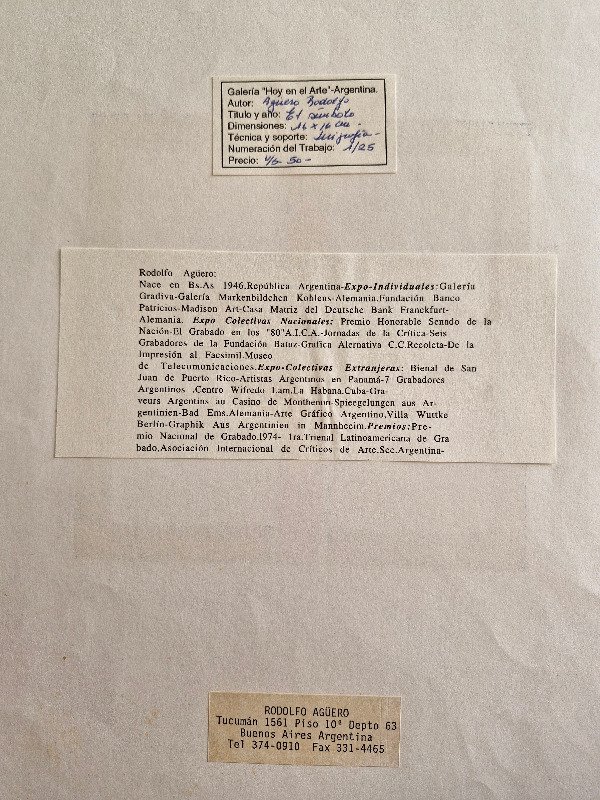 Galería "Hoy en el Arte"-Argentina.
Autor: Agüero Rodolfo
Titulo y año: El símbolo
Dimensiones: 16 x 16 cm -
Técnica y soporte: Serigrafía -
Numeración del Trabajo: 1/25
Precio: u/s 50 -
Rodolfo Agüero:
Nace en Bs.As 1946.República Argentina-Expo-Individuales:Galería
Gradiva-Galería Markenbildchen Koblens-Alemania.Fundación Banco
Patricios-Madison Art-Casa Matriz del Deutsche Bank Franckfurt-
Alemania. Expo Colectivas Nacionales: Premio Honorable Senado de la
Nación-El Grabado en los "80"A.I.C.A.-Jornadas de la Crítica-Seis
Grabadores de la Fundación Batuz-Grafica Alernativa C.C.Recoleta-De la
Impresión al Facsimil.Museo
de Telecomunicaciones.Expo-Colectivas Extranjeras: Bienal de San
Juan de Puerto Rico-Artistas Argentinos en Panamá-7 Grabadores
Argentinos .Centro Wifredo Lam.La Habana.Cuba-Gra-
veurs Argentins au Casino de Montbenon-Spieegelungen aus Ar-
gentinien-Bad Ems.Alemania-Arte Gráfico Argentino.Villa Wuttke
Berlín-Graphik Aus Argentinien in Mannheeim.Premios:Pre-
mio Nacional de Grabado.1974- 1ra.Trienal Latinoamericana de Gra
bado.Asociación Internacional de Críticos de Arte.Sec.Argentina-
RODOLFO AGÜERO
Tucumán 1561 Piso 10º Depto 63
Buenos Aires Argentina
Tel 374-0910 Fax 331-4465